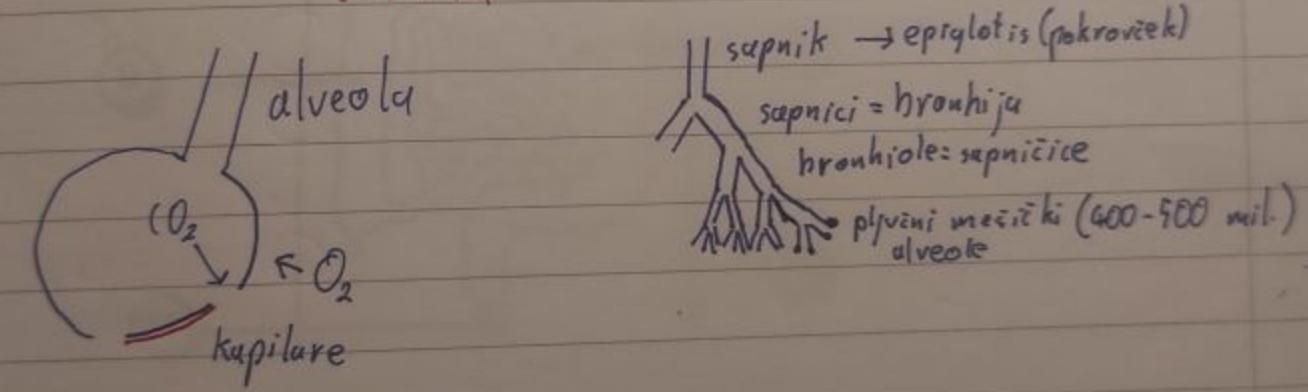 alveola
CO₂
O₂
kapilare
sapnik → epiglotis (pokrovček)
sapnici = bronhiji
bronhiole = sapničice
pljučni mešički (400-500 mil.)
alveole